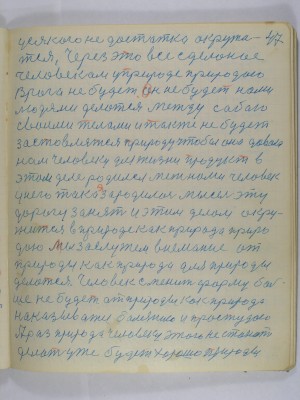 усякого недостатка окружа- 47
тся, Через это все сделоние
человеком уприроде природою
Врага небудет он небудет нами
людями делатся между сабаю
своими телами и также не будет
застовлятся природу чтобы она давала
нам человеку для жизни продукт в
этом деле родился меж нами человек
унего така зародилас мысль эту
дорогу занят и этим делом окру-
жится в природе как природа приро
дою Мы завлутем внемание от
природы как природа для природы
делатся Человек сменит форму бол-
ше не будет от природы как природа
наказывате болезнью и простудаю
А раз природа человеку этого не станет
делат уже будет хорошо природы